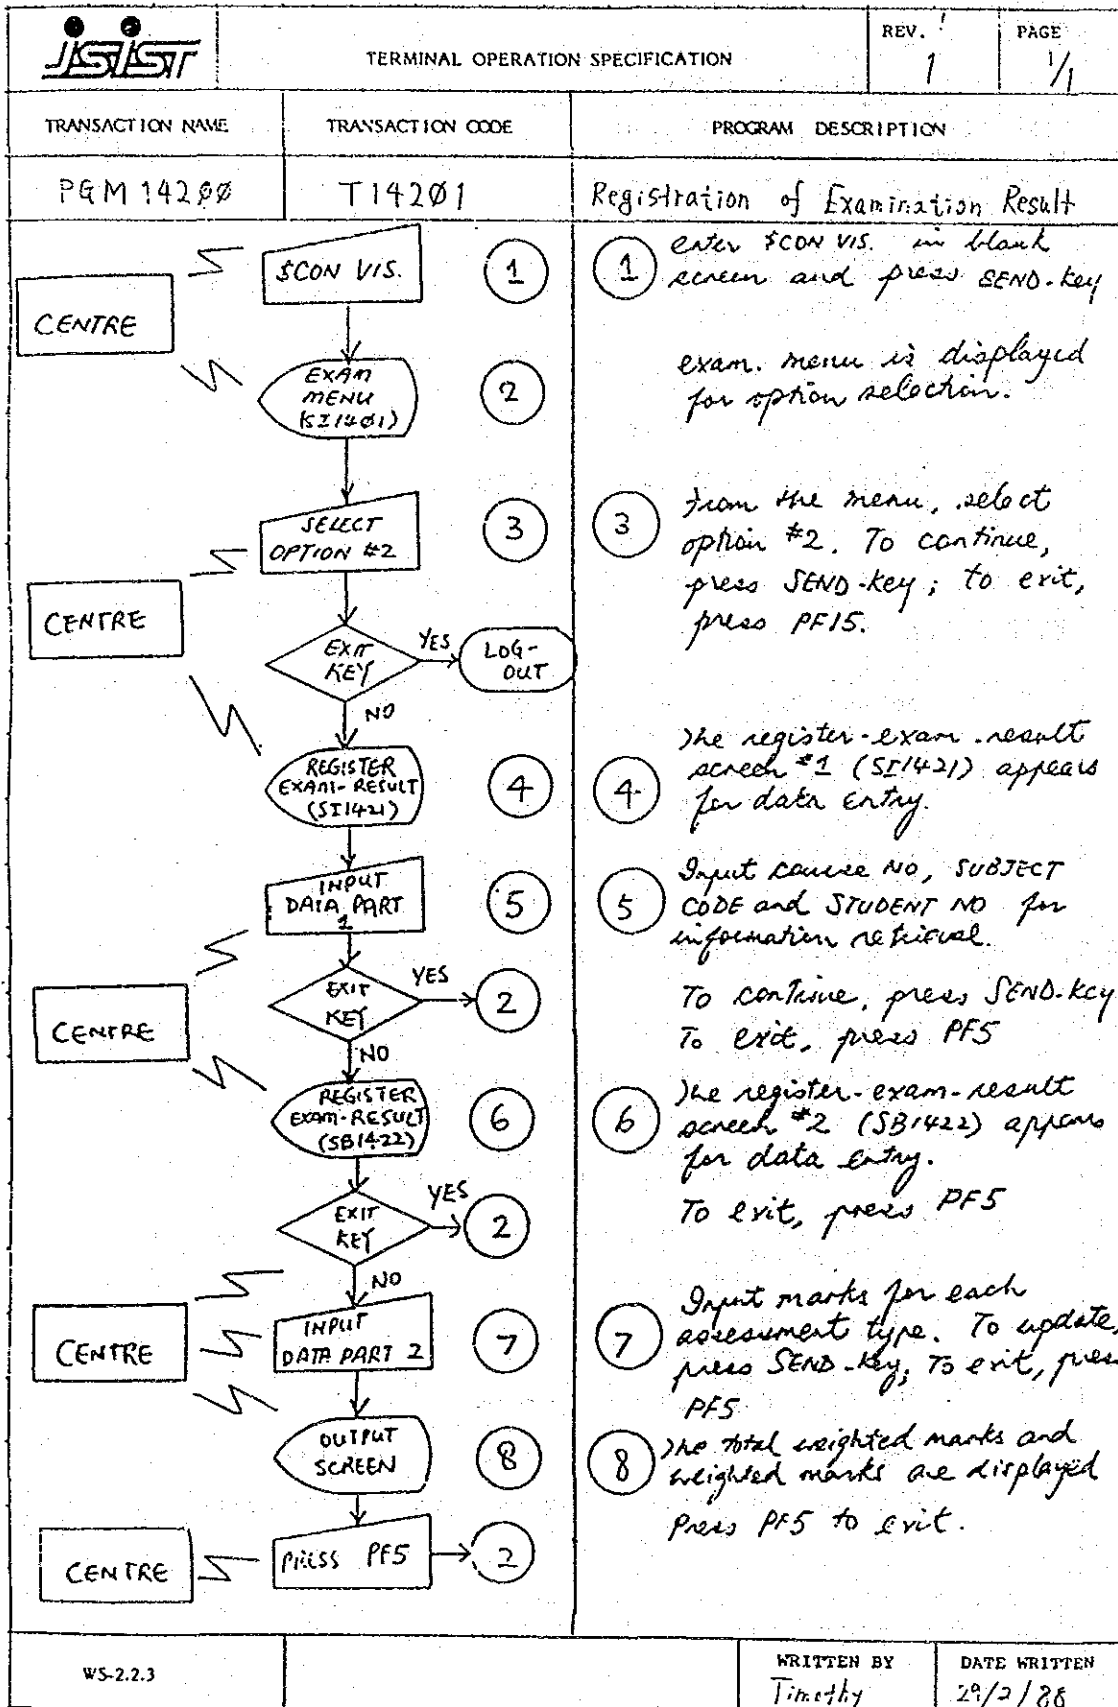 JSIST
TERMINAL OPERATION SPECIFICATION
REV.
1
PAGE
1/1
TRANSACTION NAME
TRANSACTION CODE
PROGRAM DESCRIPTION
PGM 142ØØ
T142Ø1
Registration of Examination Result
$CON VIS.
1
CENTRE
EXAM
MENU
(SI14Ø1)
2
SELECT
OPTION #2
3
CENTRE
EXIT
KEY
YES
LOG-
OUT
NO
REGISTER
EXAM-RESULT
(SI1421)
4
INPUT
DATA PART
1
5
CENTRE
EXIT
KEY
YES
2
NO
REGISTER
EXAM-RESULT
(SB1422)
6
EXIT
KEY
YES
2
NO
CENTRE
INPUT
DATA PART 2
7
OUTPUT
SCREEN
8
CENTRE
PRESS PF5
2
1
enter $CON VIS. in blank
screen and press SEND-key
exam. menu is displayed
for option selection.
3
From the menu, select
option #2. To continue,
press SEND-key; to exit,
press PF15.
4
The register-exam-result
screen #1 (SI1421) appears
for data entry.
5
Input course NO, SUBJECT
CODE and STUDENT NO for
information retrieval.
To continue, press SEND-key
To exit, press PF5
6
The register-exam-result
screen #2 (SB1422) appears
for data entry.
To exit, press PF5
7
Input marks for each
assessment type. To update,
press SEND-key; To exit, press
PF5
8
The total weighted marks and
weighted marks are displayed
Press PF5 to exit.
WS-2.2.3
WRITTEN BY
Timothy
DATE WRITTEN
29/2/88